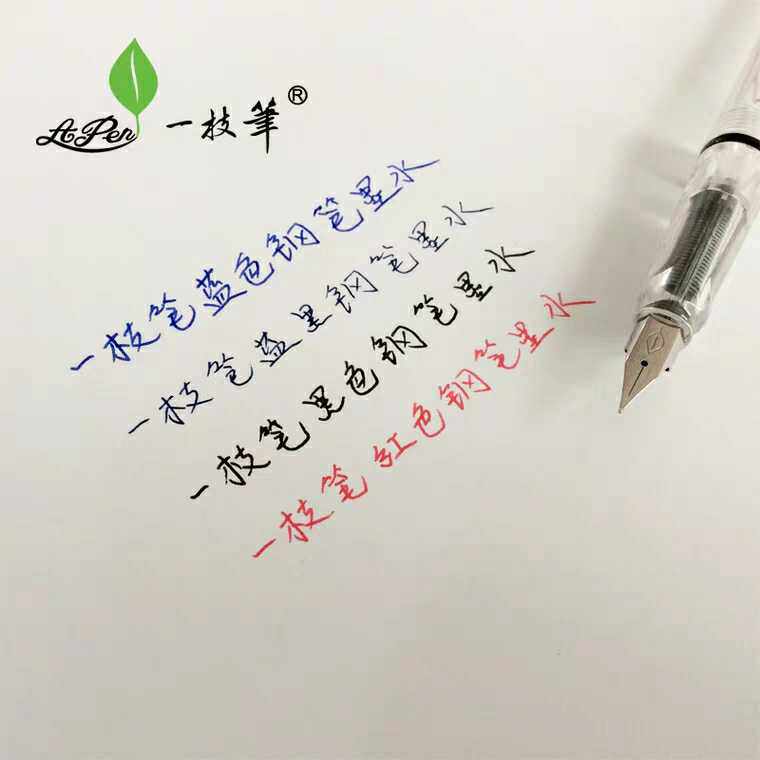 A Pen 一枝筆®
一枝笔蓝色钢笔墨水
一枝笔蓝黑钢笔墨水
一枝笔黑色钢笔墨水
一枝笔红色钢笔墨水